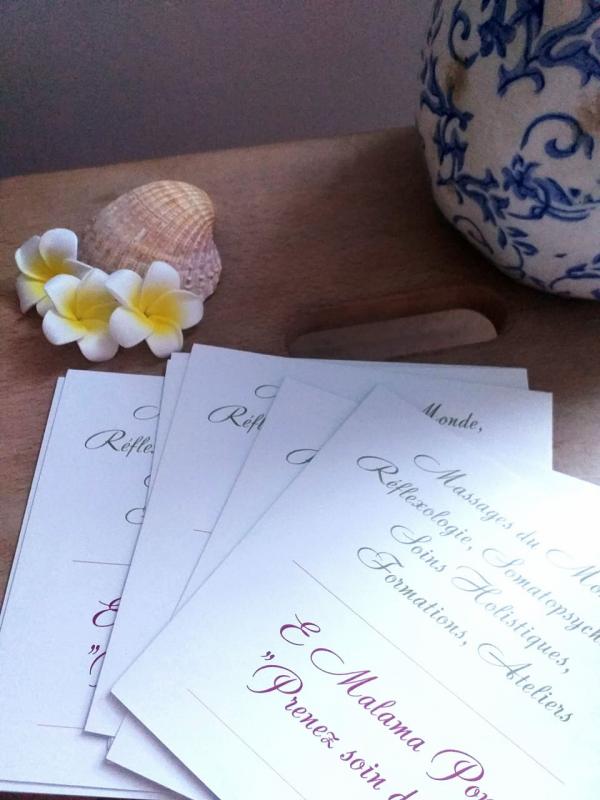 Monde,
Massages du Mo
Réflexologie, Somatopsych
Soins Holistiques,
Formations, Ateliers
E Malama Pon
"Prenez soin d
Réfl
Réfle
E